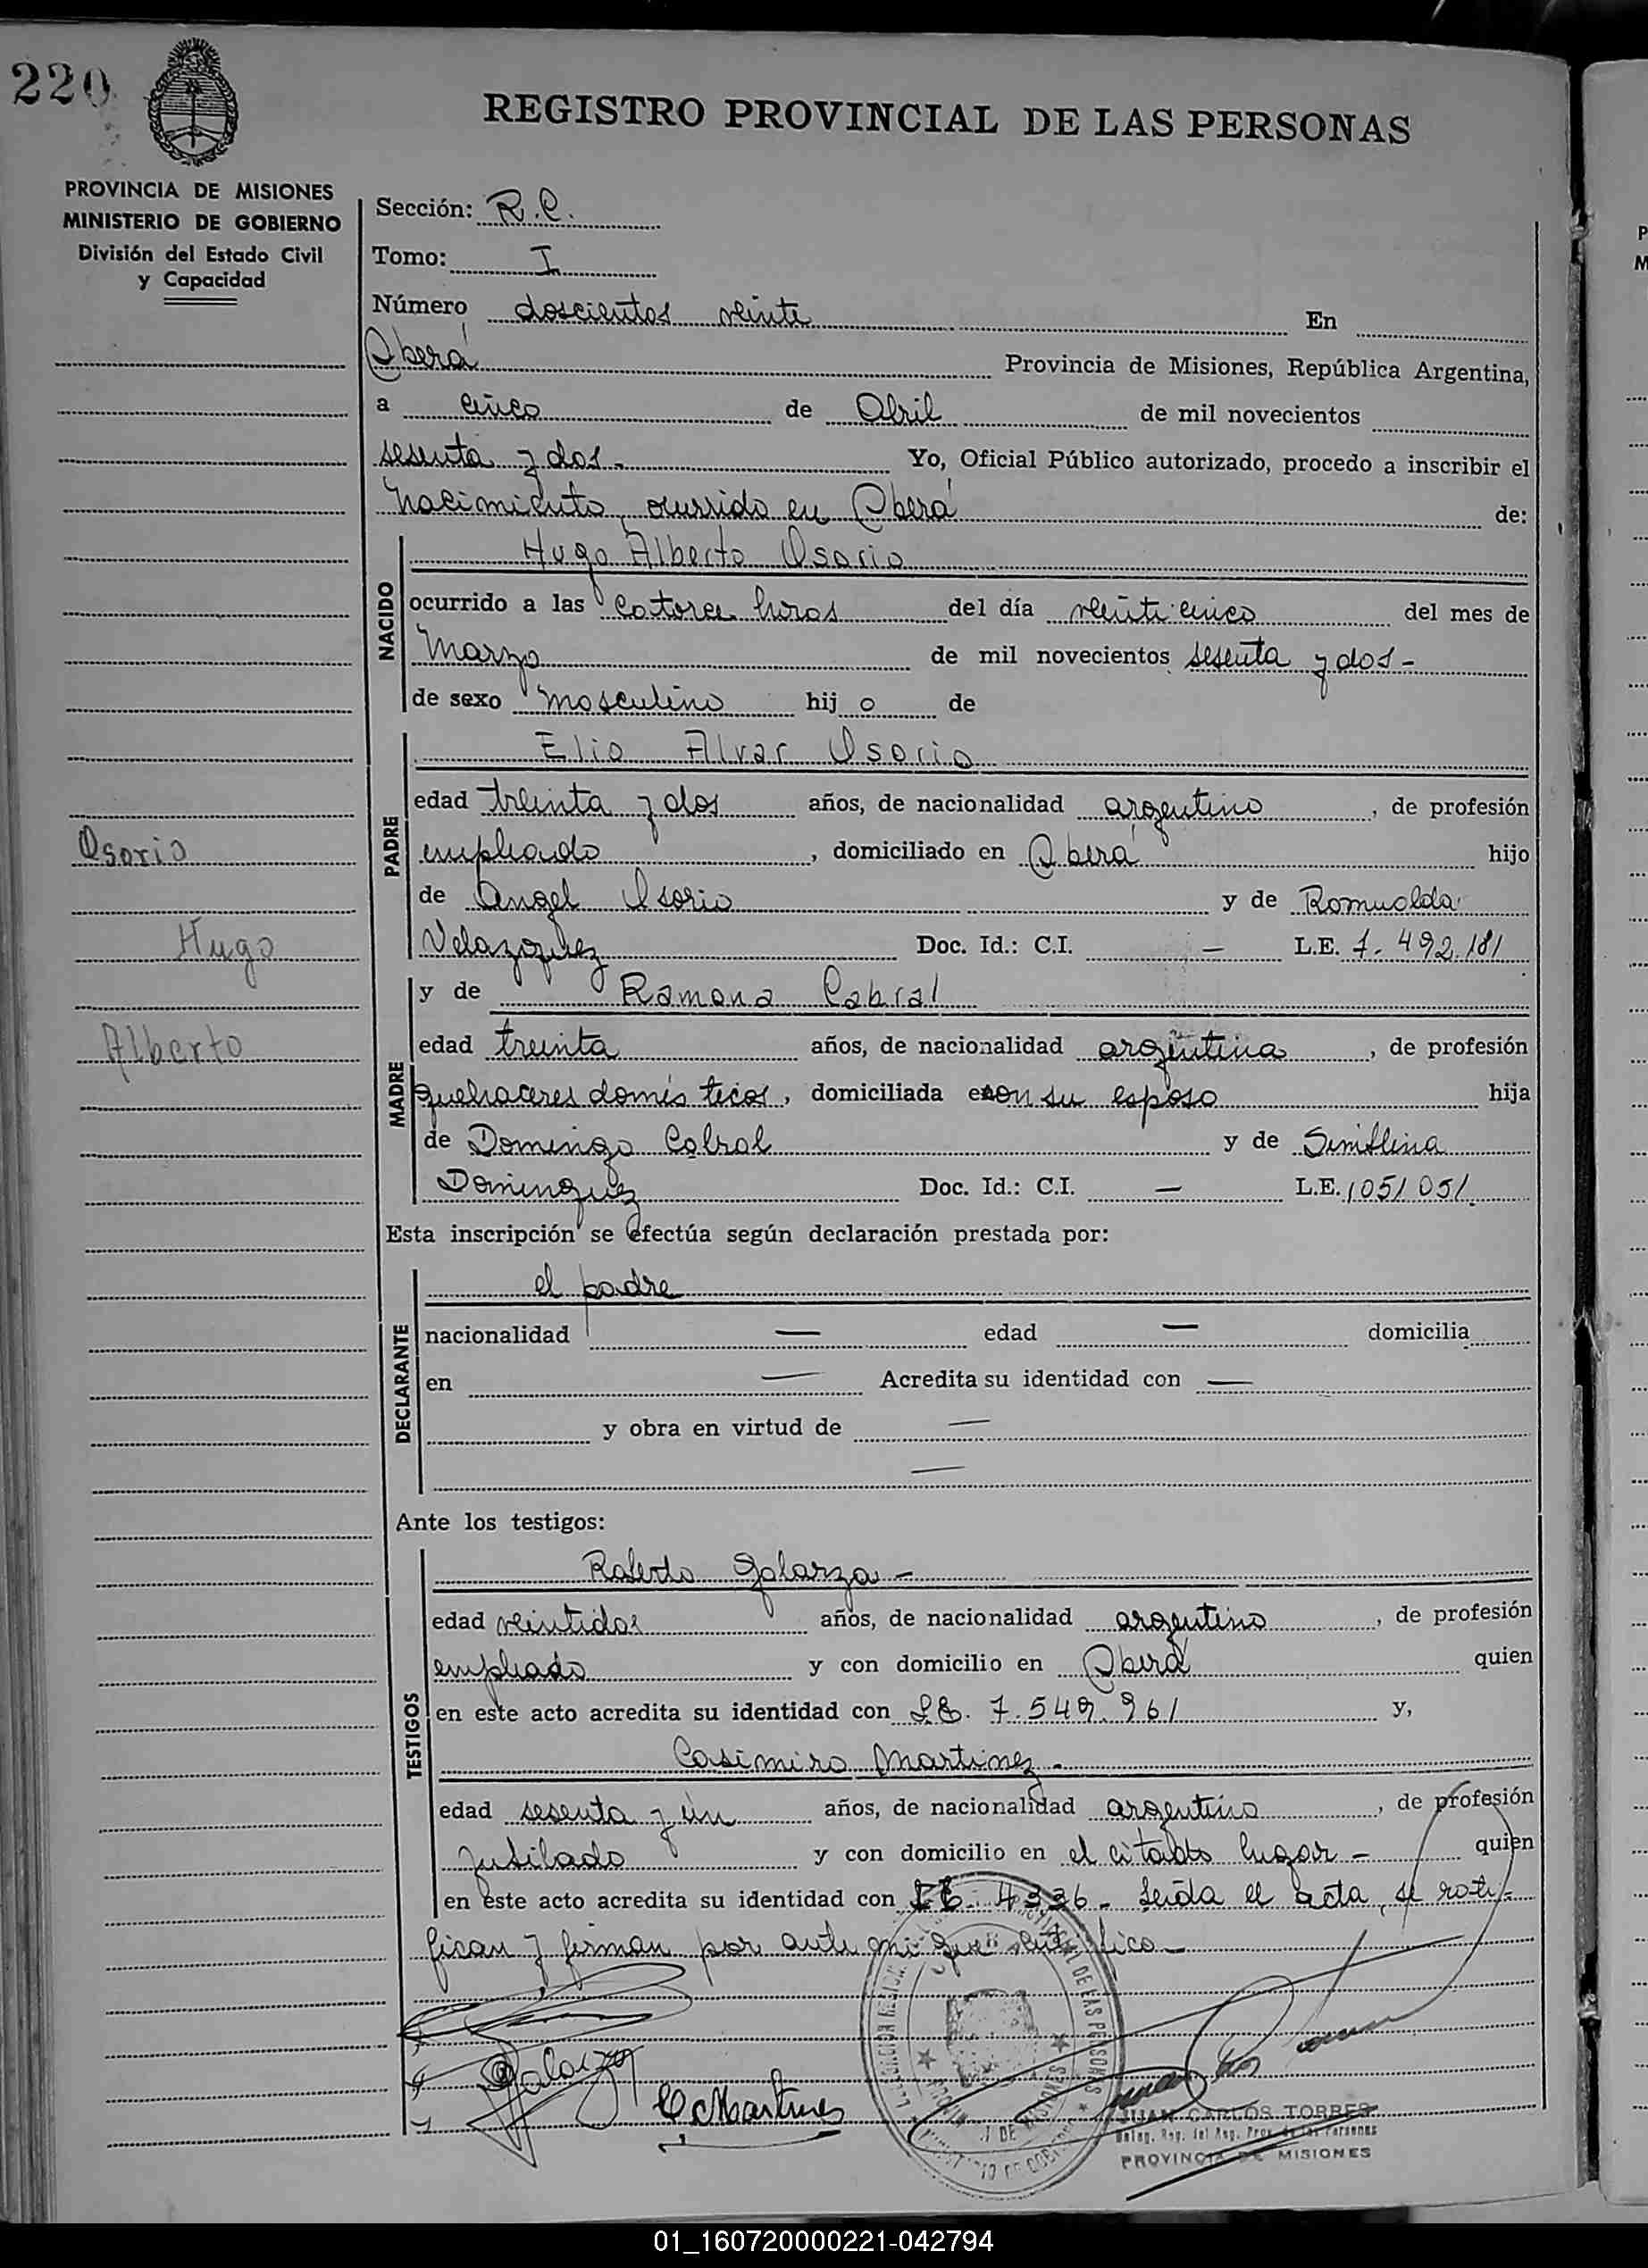 220
REGISTRO PROVINCIAL DE LAS PERSONAS
PROVINCIA DE MISIONES
MINISTERIO DE GOBIERNO
División del Estado Civil
y Capacidad
Sección: R.C.
Tomo: I
Número doscientos veinte En
Oberá Provincia de Misiones, República Argentina,
a cinco de Abril de mil novecientos
sesenta y dos - Yo, Oficial Público autorizado, procedo a inscribir el
Nacimiento ocurrido en Oberá de:
NACIDO
Hugo Alberto Osorio
ocurrido a las catorce horas del día veinticinco del mes de
Marzo de mil novecientos sesenta y dos -
de sexo masculino hij o de
PADRE
Elio Alvar Osorio
edad treinta y dos años, de nacionalidad argentino, de profesión
empleado, domiciliado en Oberá hijo
de Angel Osorio y de Romualda
Velazquez Doc. Id.: C.I. — L.E. 7.492.181
Osorio
Hugo
Alberto
MADRE
y de Ramona Cabral
edad treinta años, de nacionalidad argentina, de profesión
quehaceres domésticos, domiciliada con su esposo hija
de Domingo Cabral y de
Dominguez Doc. Id.: C.I. — L.E. 1051051
Esta inscripción se efectúa según declaración prestada por:
DECLARANTE
el padre
nacionalidad — edad — domicilia
en — Acredita su identidad con —
y obra en virtud de —
—
Ante los testigos:
TESTIGOS
Roberto Galarza -
edad veintidos años, de nacionalidad argentino, de profesión
empleado y con domicilio en Oberá quien
en este acto acredita su identidad con L.E. 7.549.961 y,
Casimiro Martinez -
edad sesenta y un años, de nacionalidad argentino, de profesión
jubilado y con domicilio en el citado lugar - quien
en este acto acredita su identidad con 4336 - Leida el acta, se rati-
fican y firman por ante mi que certifico -
Galarza
C Martines
JUAN CARLOS TORRES
Deleg. Reg. del Reg. Prov. de las Personas
PROVINCIA DE MISIONES
01_160720000221-042794